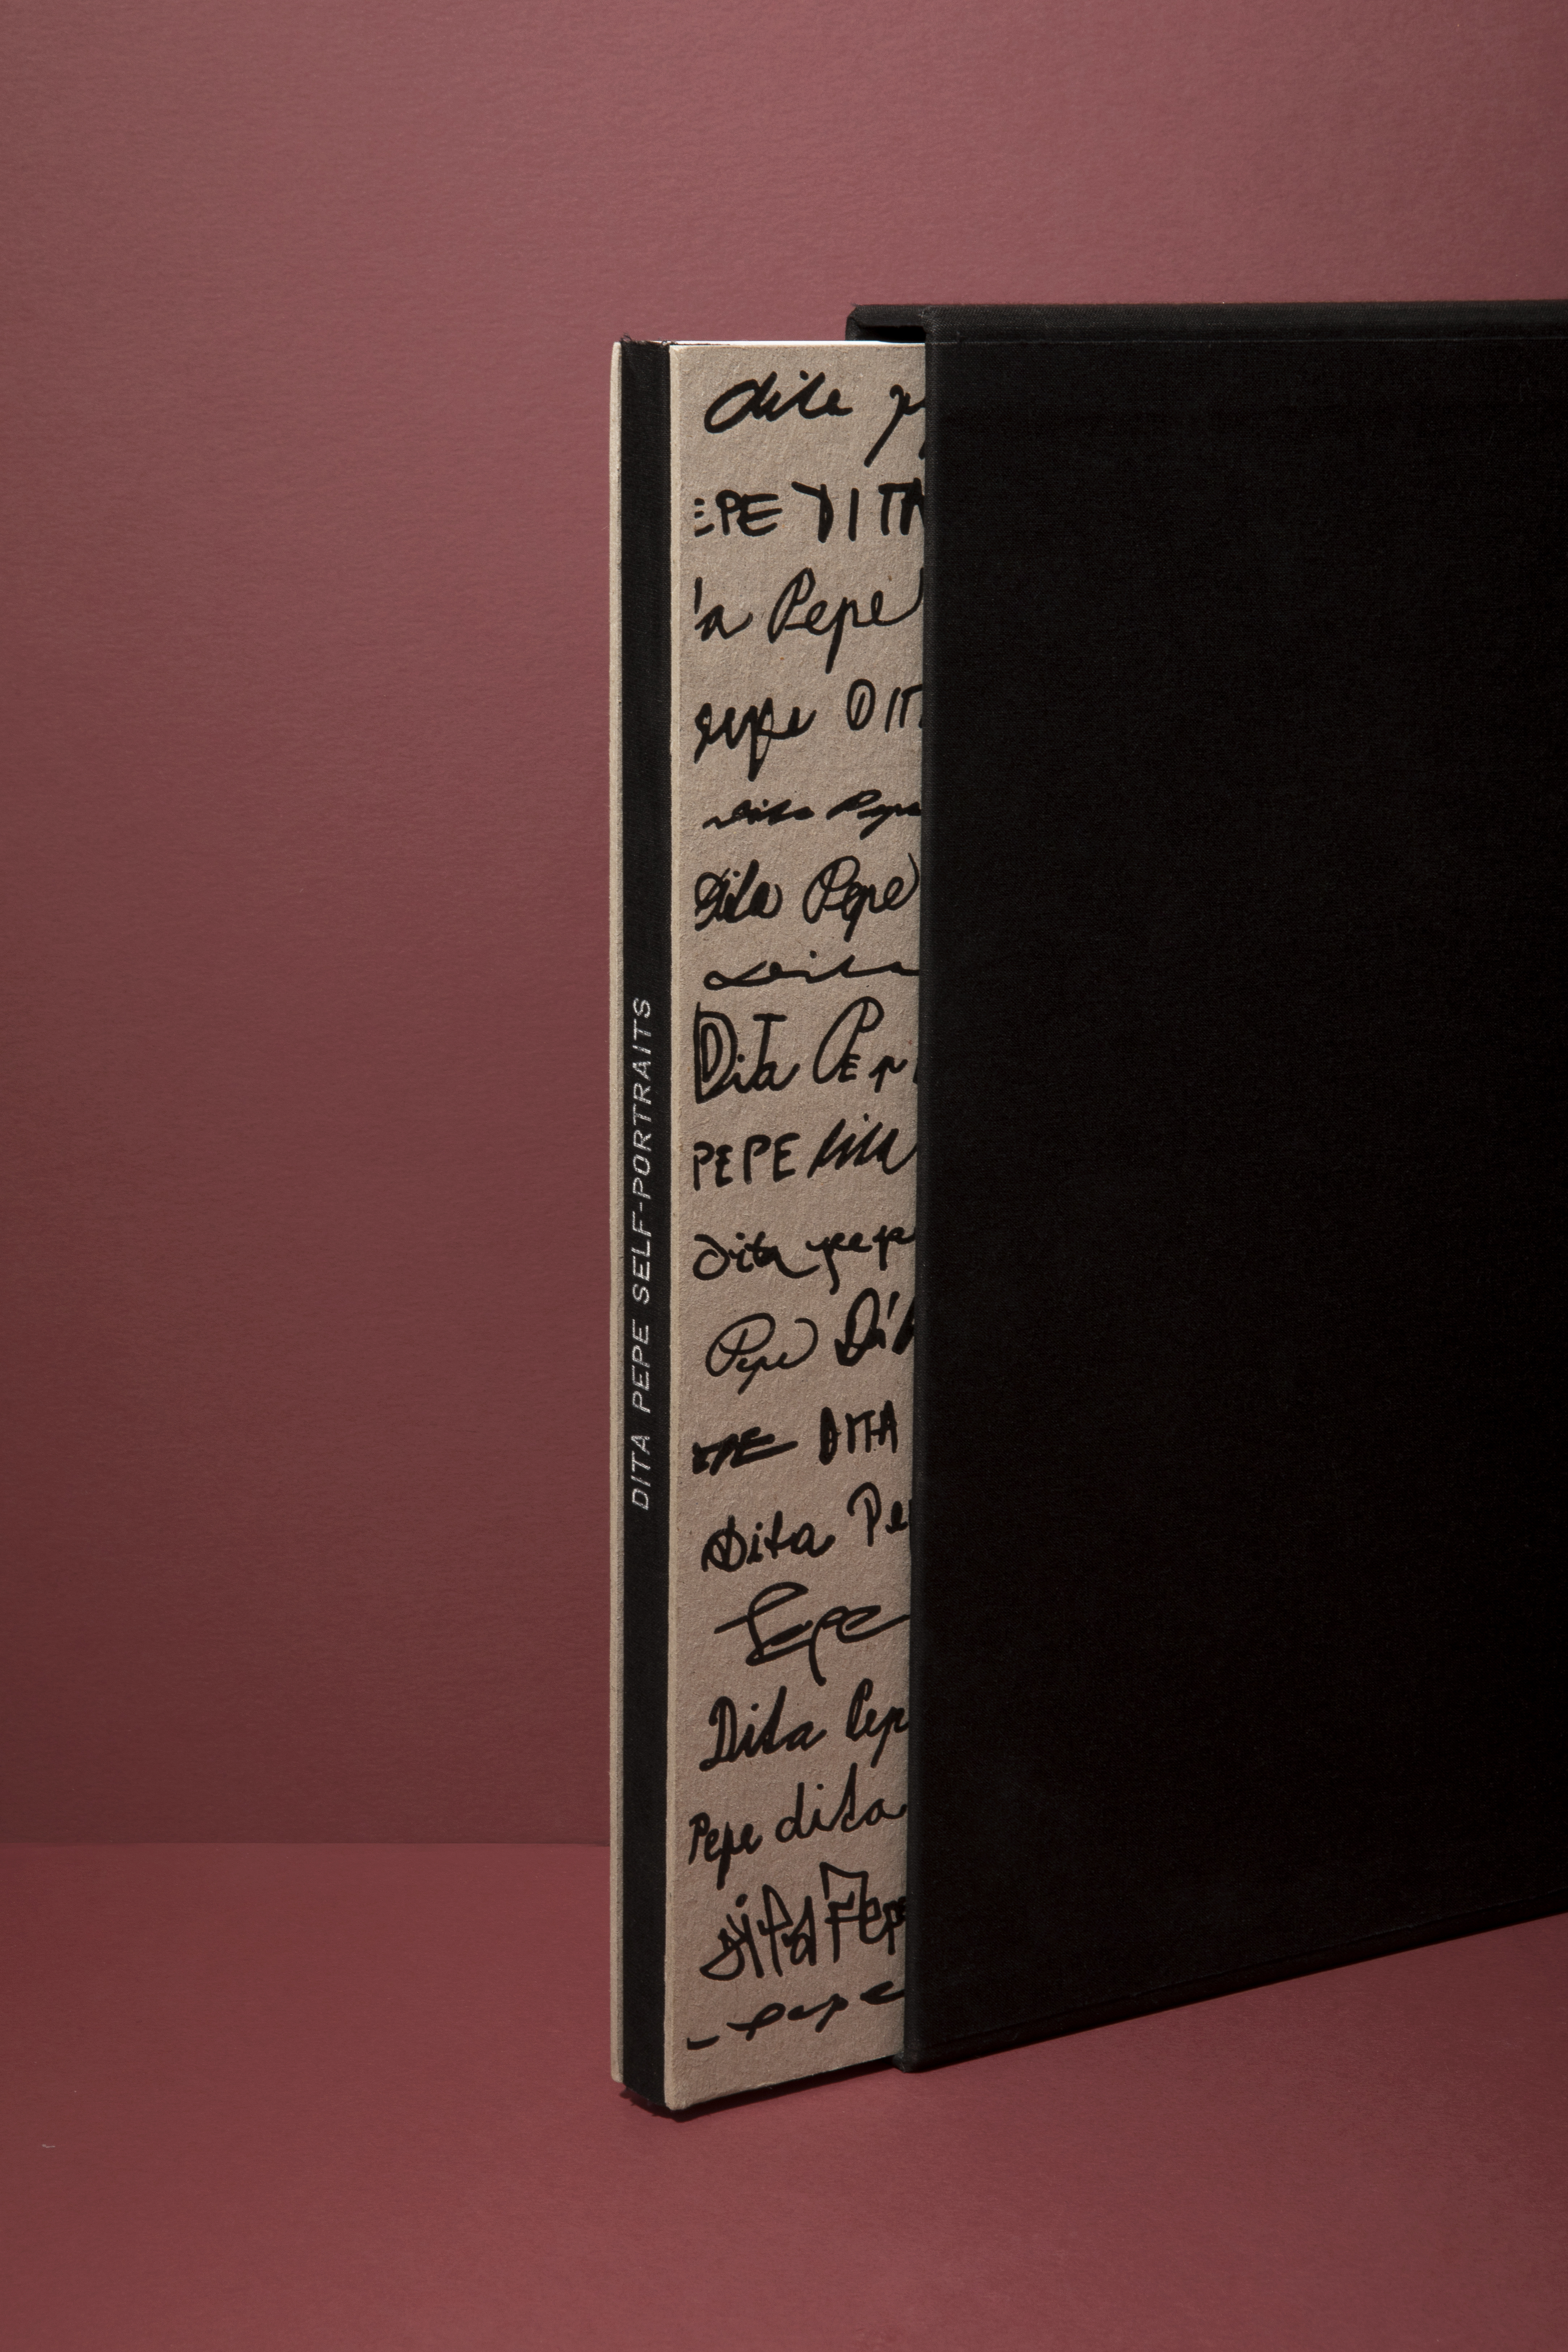 DITA PEPE SELF-PORTRAITS
dita p
EPE DITA
a Pepe
pepe DIT
Dita Pepe
Dita Pepe
Dita
DiTa PEp
PEPE dita
dita pep
Pepe Dit
DITA
Dita Pe
Pepe
Dita Pep
Pepe dita
dita Pepe
pepe